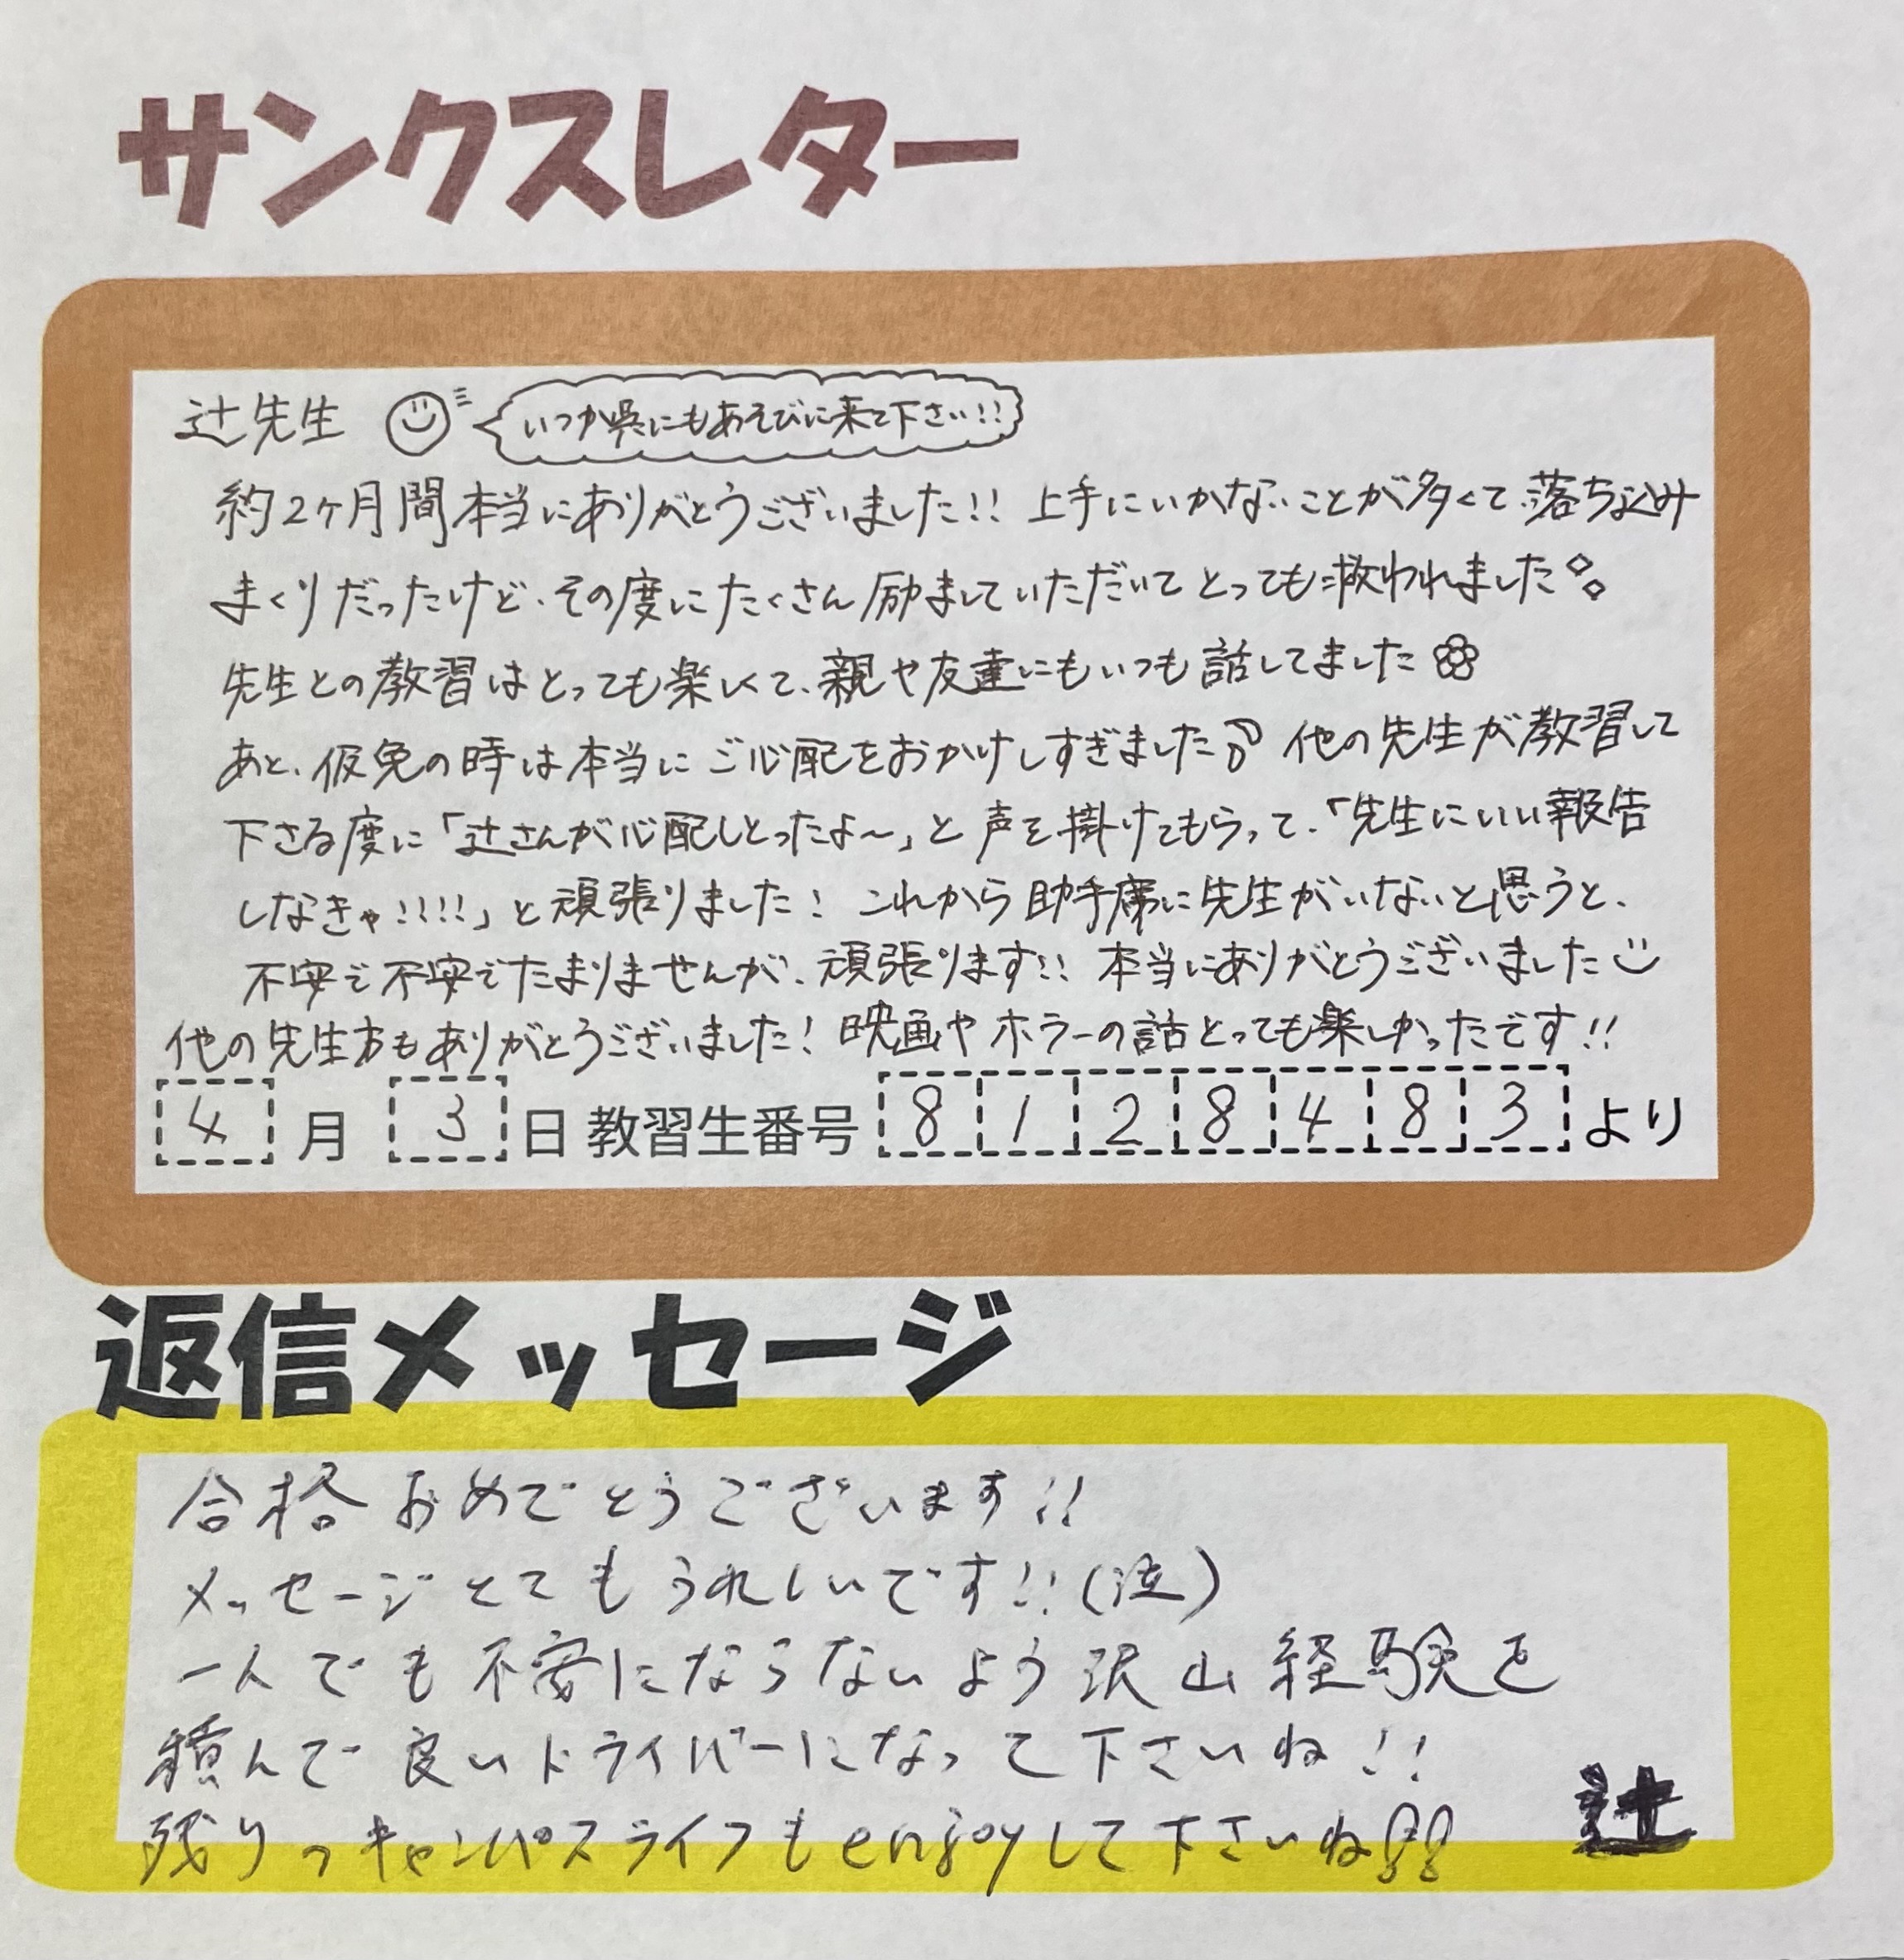 サンクスレター
辻先生 いつか呉にもあそびに来て下さい!!
約2ヶ月間本当にありがとうございました!! 上手にいかないことが多くて、落ち込み
まくりだったけど、その度にたくさん励ましていただいてとっても救われました
先生との教習はとっても楽しくて、親や友達にもいつも話してました
あと、仮免の時は本当にご心配をおかけしすぎました 他の先生が教習して
下さる度に「辻さんが心配しとったよ〜」と声を掛けてもらって、「先生にいい報告
しなきゃ!!!!」と頑張りました! これから助手席に先生がいないと思うと、
不安で不安でたまりませんが、頑張ります!! 本当にありがとうございました
他の先生方もありがとうございました! 映画やホラーの話とっても楽しかったです!!
4月3日 教習生番号 8128483 より
返信メッセージ
合格おめでとうございます!!
メッセージとてもうれしいです!!(泣)
一人でも不安にならないよう沢山経験を
積んで良いドライバーになって下さいね!!
残りのキャンパスライフもenjoyして下さいね!!
辻